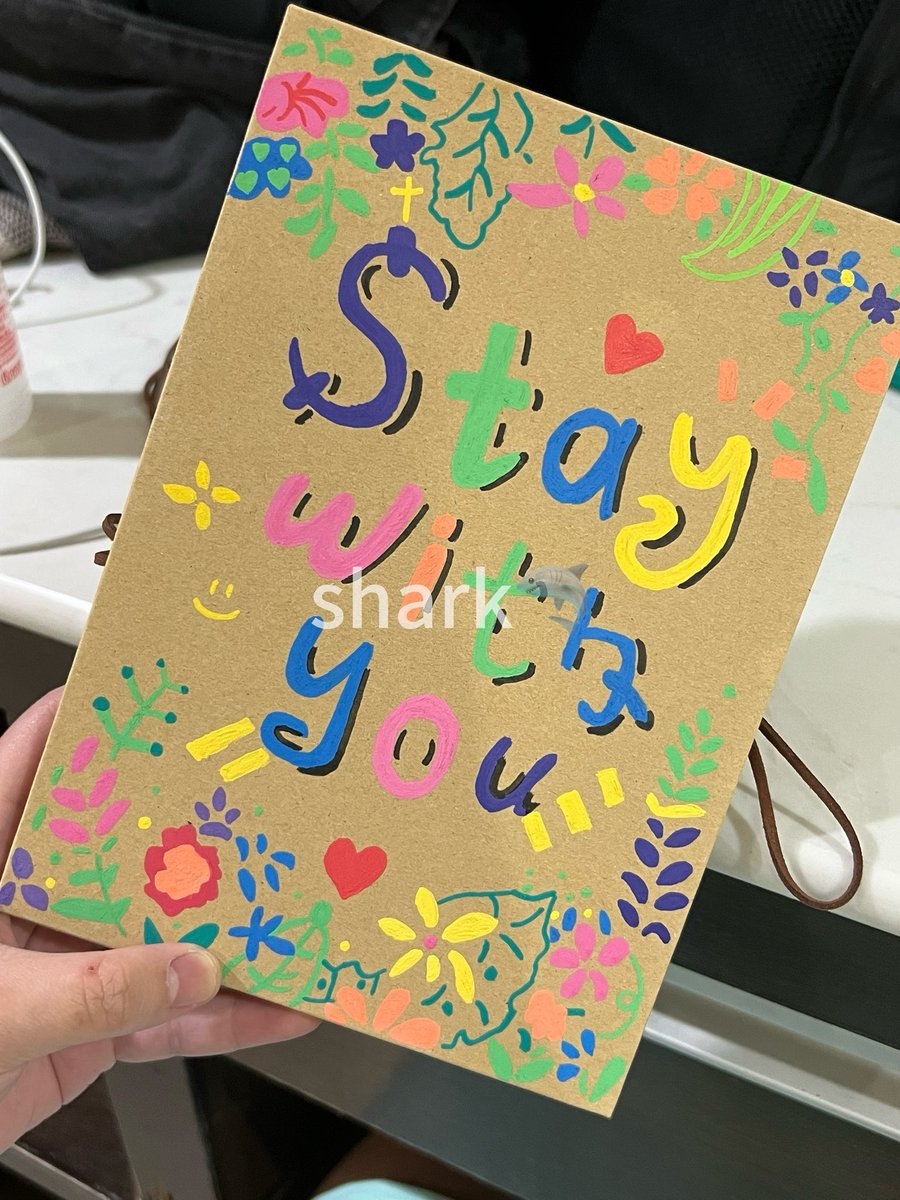 Stay
with
you
shark🦈